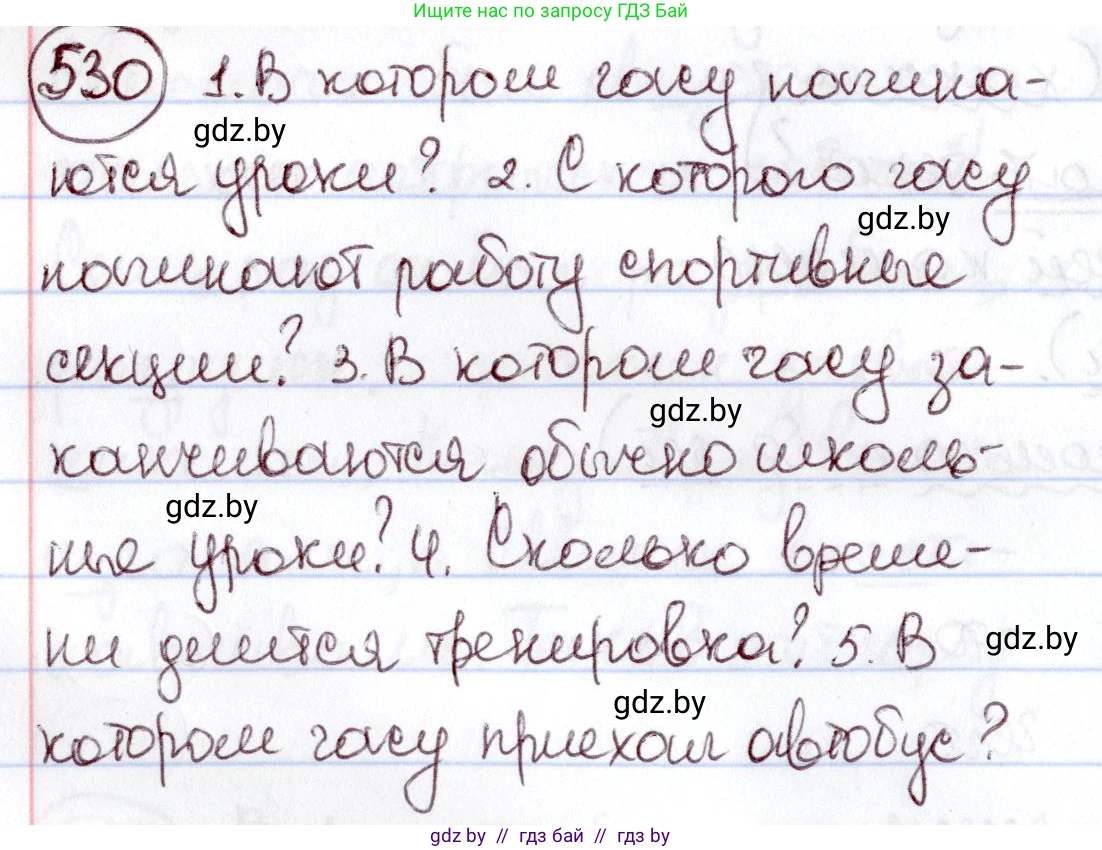 Ищите нас по запросу ГДЗ Бай
530 1. В котором часу начина-
gdz.by
ются уроки? 2. С которого часу
gdz.by
начинают работу спортивные
секции? 3. В котором часу за-
gdz.by
канчиваются обычно школь-
gdz.by
ные уроки? 4. Сколько време-
ни длится тренировка? 5. В
gdz.by
gdz.by
котором часу приехал автобус?
gdz.by // гдз бай // гдз by